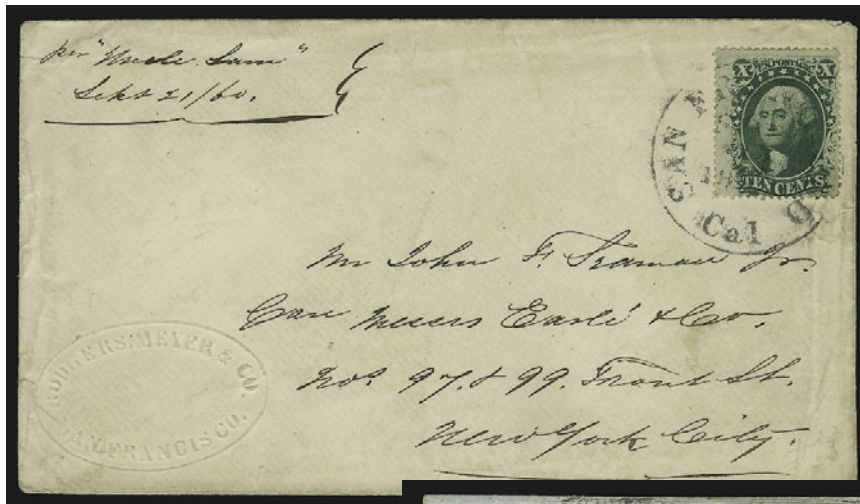 per "Uncle Sam"
Sept 21/60.
X U.S. POSTAGE X
TEN CENTS
SAN
Cal
Mr John F. Seaman Jr.
Care Messrs Earle & Co.
Nos 97 & 99. Front St.
New York City.
RODGERS, MEYER & CO.
SAN FRANCISCO.